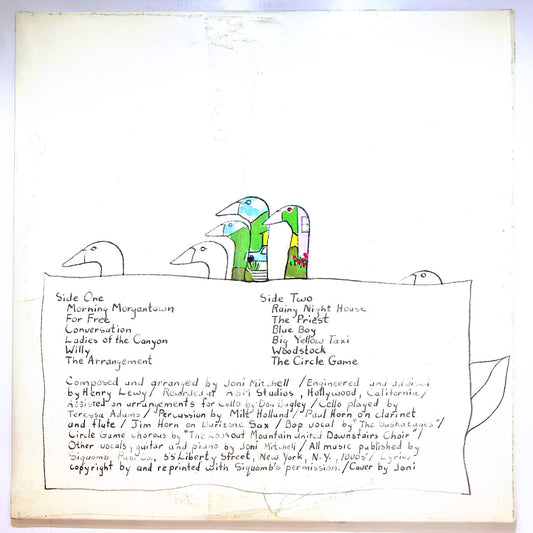 Side One
Morning Morgantown
For Free
Conversation
Ladies of the Canyon
Willy
The Arrangement
Side Two
Rainy Night House
The Priest
Blue Boy
Big Yellow Taxi
Woodstock
The Circle Game
Composed and arranged by Joni Mitchell / Engineered and advised
by Henry Lewy / Recorded at A&M Studios, Hollywood, California /
Assisted on arrangements for cello by Don Bagley / Cello played by
Teressa Adams / Percussion by Milt Holland / Paul Horn on clarinet
and flute / Jim Horn on Baritone Sax / Bop vocal by "The Saskatunes" /
Circle Game chorus by "The Lookout Mountain United Downstairs Choir" /
Other vocals, guitar and piano by Joni Mitchell / All music published by
Siquomb, 55 Liberty Street, New York, N.Y., 10005 / Lyrics
copyright by and reprinted with Siquomb's permission. / Cover by Joni